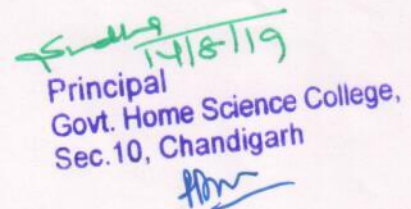 14/8/19
Principal
Govt. Home Science College,
Sec.10, Chandigarh